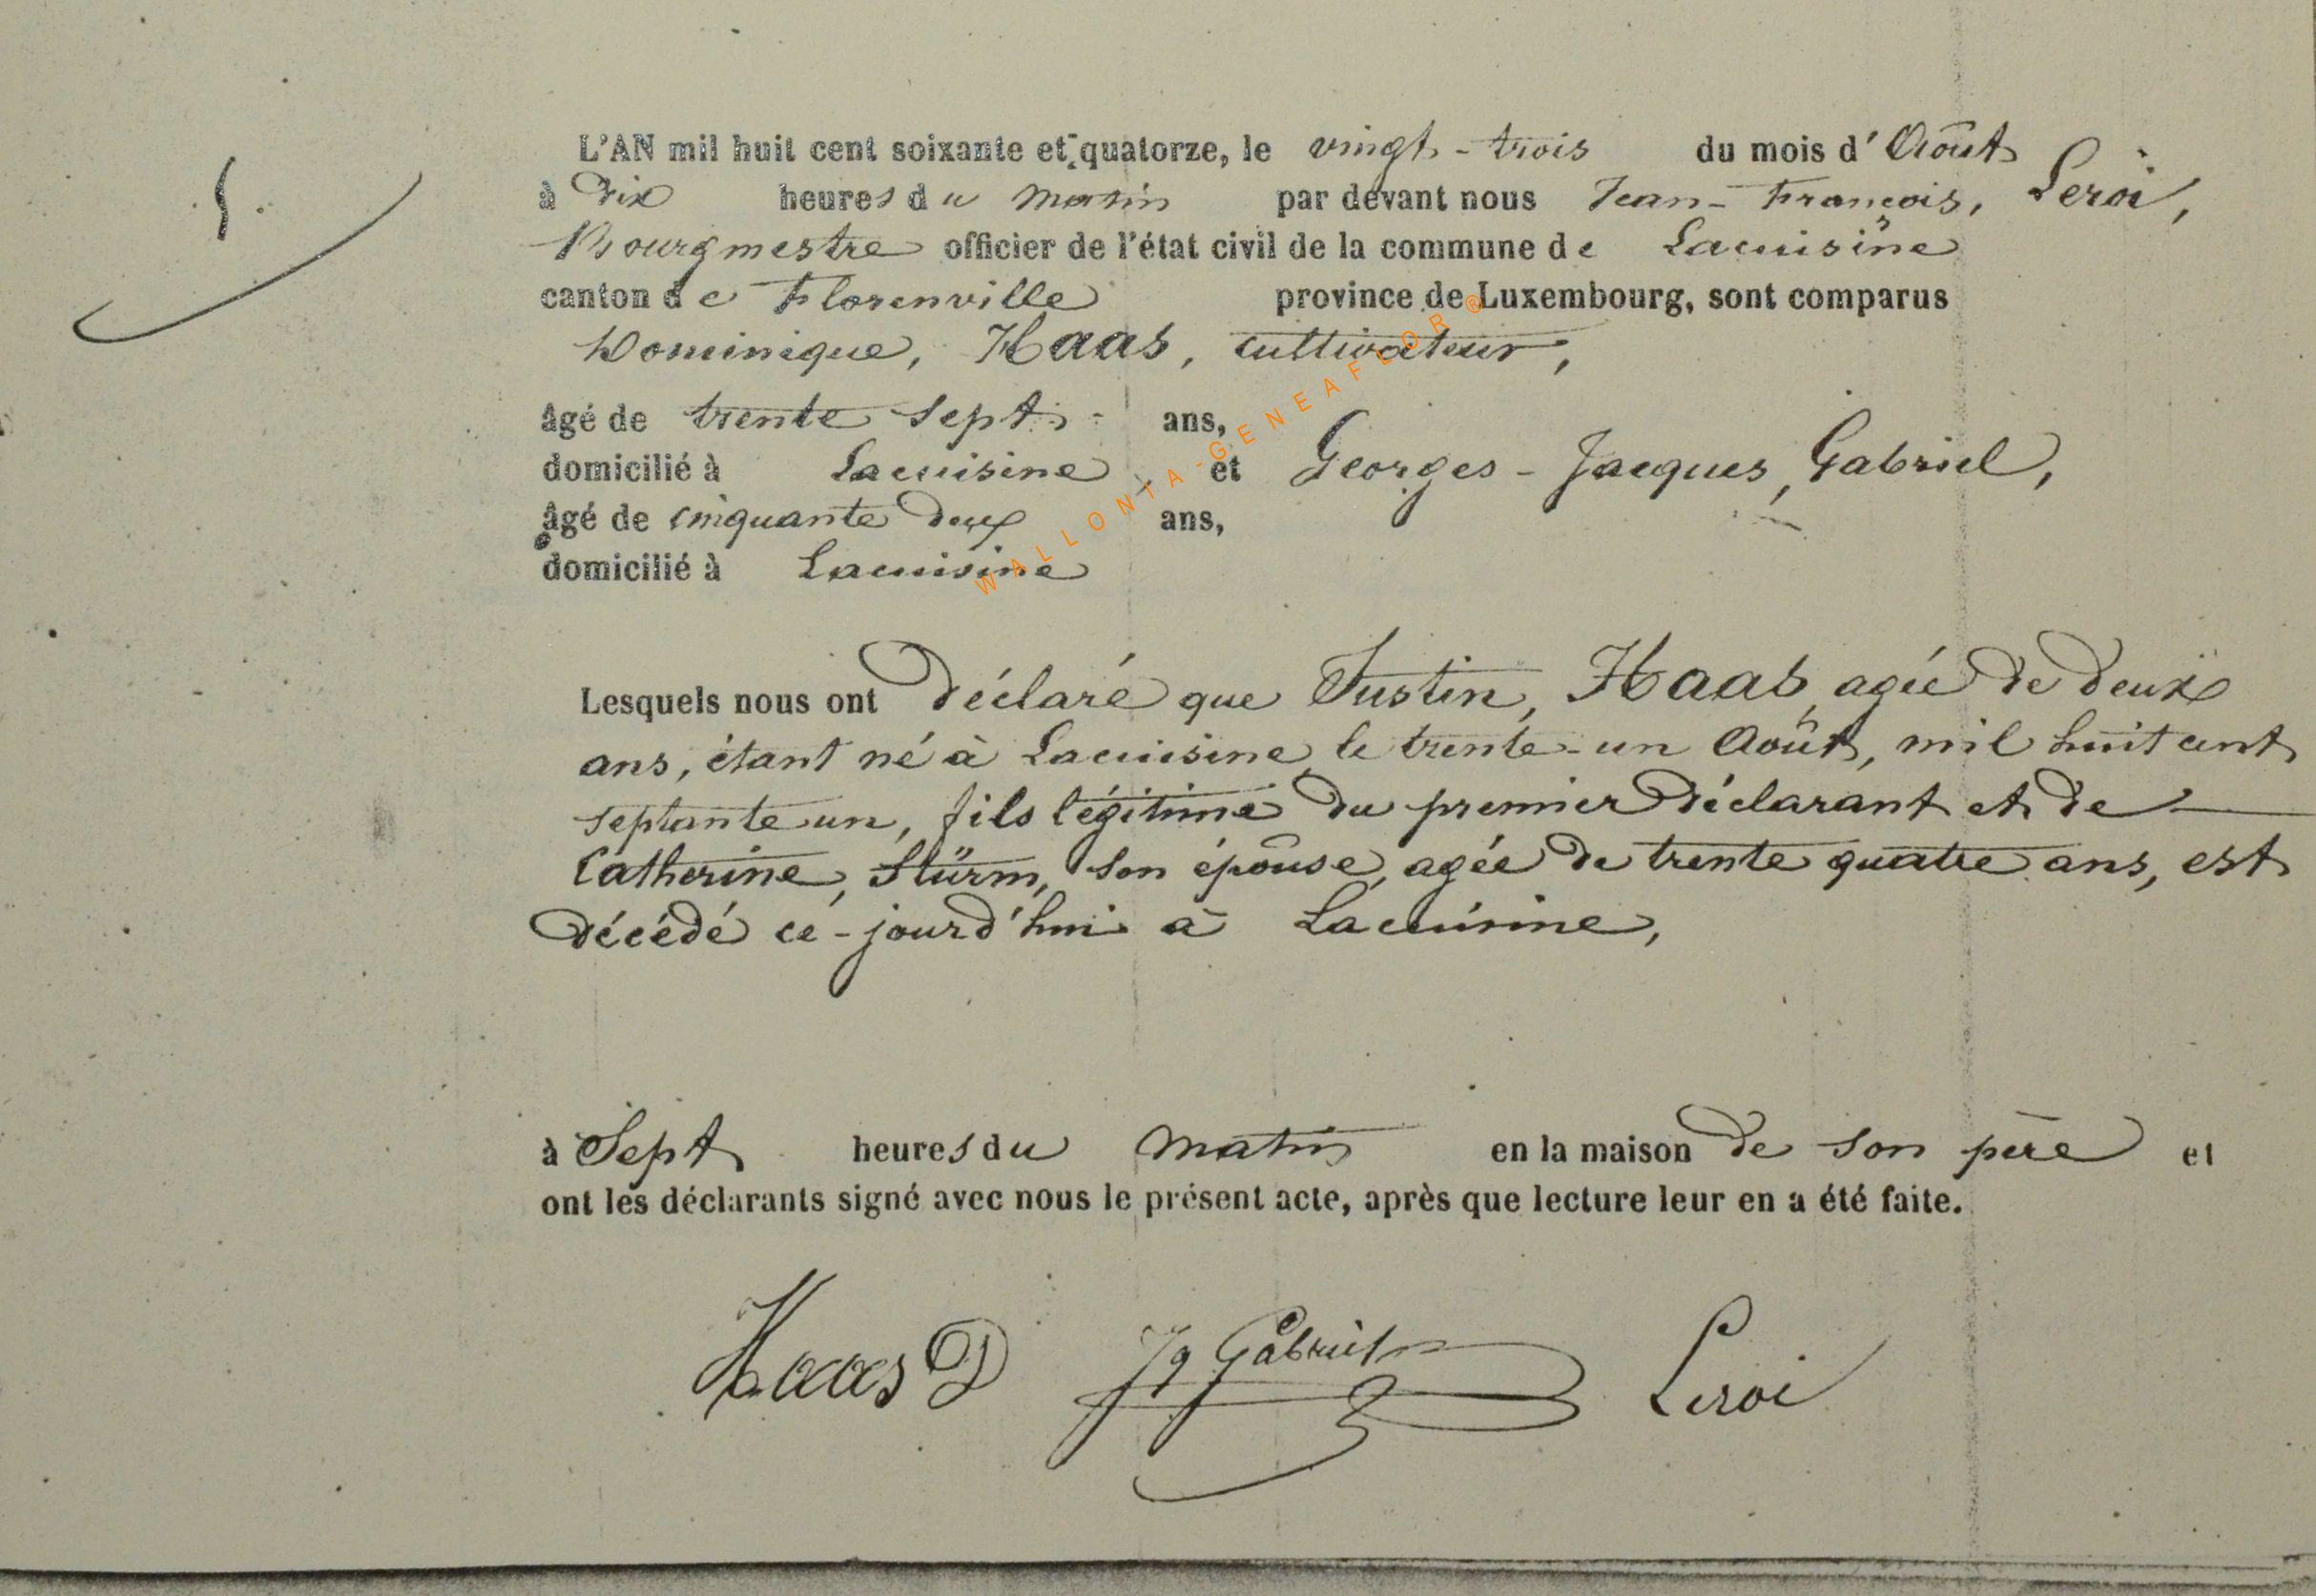 L'AN mil huit cent soixante et quatorze, le vingt-trois du mois d'Août
à Dix heures du matin par devant nous Jean-François, Leroi,
Bourgmestre officier de l'état civil de la commune de Lacuisine
canton de Florenville province de Luxembourg, sont comparus
Dominique, Haas, cultivateur,
âgé de trente sept ans,
domicilié à Lacuisine, et Georges-Jacques, Gabriel,
âgé de cinquante deux ans,
domicilié à Lacuisine
WALLONIA-GENEAFLOR ©
Lesquels nous ont Déclaré que Justin, Haas, agée de deux
ans, étant né à Lacuisine, le trente-un Août, mil huit cent
septante un, fils légitime du premier Déclarant et de
Catherine, Stürm, son épouse, agée de trente quatre ans, est
décédé ce-jourd'hui à Lacuisine,
à Sept heures du matin en la maison de son père et
ont les déclarants signé avec nous le présent acte, après que lecture leur en a été faite.
Haas D Jq Gabriel Leroi